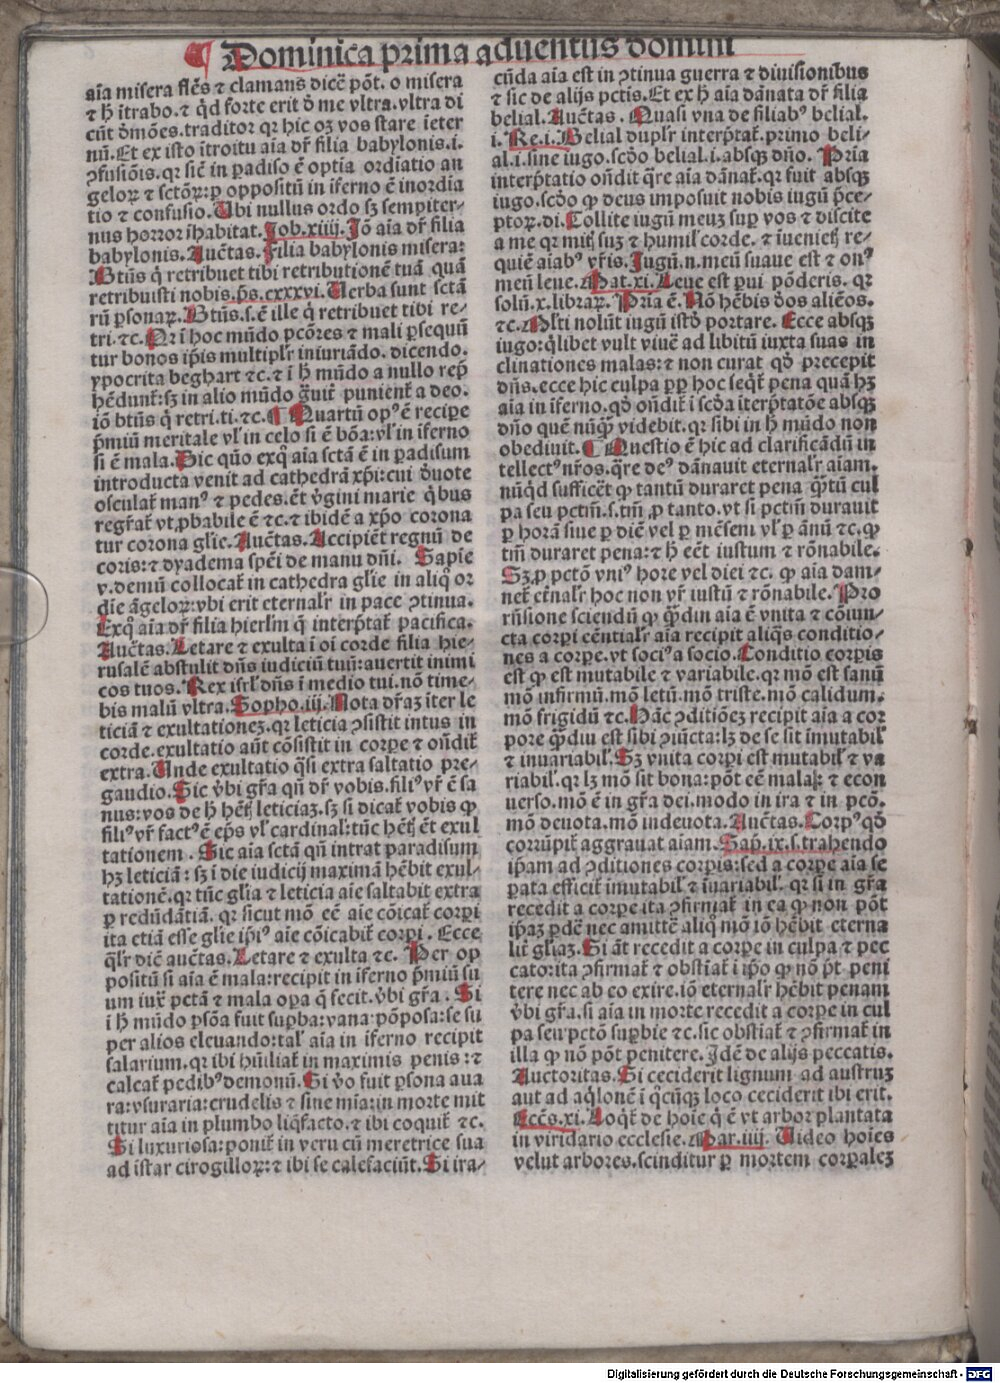 ¶ Dominica prima aduentus domini
aĩa misera flẽs ⁊ clamans dicẽ põt. o misera
⁊ ħ ĩtrabo. ⁊ q̃d forte erit d̕ me vltra. vltra di
cũt d̕mões. traditor qꝛ hic oꝫ vos stare ieter
nũ. Et ex isto ĩtroitu aĩa dr̃ filia babylonis. i.
ꝯfusiõis. qꝛ sic̃ in padiso ẽ optia ordiatio an
geloꝝ ⁊ sctõꝝ: ꝑ oppositũ in iferno ẽ inordia
tio ⁊ confusio. Ubi nullus ordo sꝫ sempiter⸗
nus horror ĩhabitat. Job. xiiij. Jõ aĩa dr̃ filia
babylonis. Auc̃tas. Filia babylonis misera:
Btũs q̇ retribuet tibi retributionẽ tuã quã
retribuisti nobis. p̃s. cxxxvi. Uerba sunt sctã
rũ ꝑsonaꝝ. Btũs. s. ẽ ille q̇ retribuet tibi re⸗
tri. ⁊c. Nr̃ ĩ hoc mũdo pcõres ⁊ mali ꝑsequũ
tur bonos ip̃is multiplr̃ iniuriãdo. dicendo.
ypocrita beghart ⁊c. ⁊ ĩ ħ mũdo a nullo rep̃
hẽdunt᷑: sꝫ in alio mũdo g̃uit᷑ punient᷑ a deo.
iõ btũs q̇ retri. ti. ⁊c. ¶ Quartũ opꝰ ẽ recipe
p̃miũ meritale vl̕ in celo si ẽ bõa: vl̕ in iferno
si ẽ mala. Sic qũo exq̃ aĩa sctã ẽ in padisum
introducta venit ad cathedrã xp̃i: cui d̕uote
osculat᷑ manꝰ ⁊ pedes. ẽt v̕gini marie q̇bus
regr̃at᷑ vt ꝓbabile ẽ ⁊c. ⁊ ibidẽ a xp̃o corona
tur corona gl̃ie. Auc̃tas. Accipiẽt regnũ de
coris: ⁊ dyadema spẽi de manu dñi. Sapĩe
v. demũ collocat᷑ in cathedra gl̃ie in aliq̃ or
dĩe ãgeloꝝ: vbi erit eternalr̃ in pace ꝯtinua.
Exq̃ aĩa dr̃ filia hierl̃m q̃ interp̃tat᷑ pacifica.
Auc̃tas. Letare ⁊ exulta ĩ oi corde filia hie⸗
rusalẽ abstulit dñs iudiciũ tuũ: auertit inimi
cos tuos. Rex isrl̃ dñs ĩ medio tui. nõ time⸗
bis malũ vltra. Sopho. iij. Nota dr̃aꝫ iter le
ticiã ⁊ exultationeꝫ. qꝛ leticia ꝯsistit intus in
corde. exultatio aũt cõsistit in corpe ⁊ oñdit᷑
extra. Unde exultatio q̃si extra saltatio pre⸗
gaudio. Sic v̕bi gr̃a qñ dr̃ vobis. filiꝰ vr̃ ẽ sa
nus: vos de ħ hẽtꝭ leticiaꝫ. sꝫ si dicat᷑ vobis ꝙ
filiꝰ vr̃ factꝰ ẽ ep̃s vl̕ cardinal᷑: tũc hẽtꝭ ẽt exul
tationem. Sic aĩa sctã qñ intrat paradisum
hꝫ leticiã: sꝫ ĩ die iudicij maximã hẽbit exul⸗
tationẽ. qꝛ tũc gl̃ia ⁊ leticia aĩe saltabit extra
ꝑ redũdãtiã. qꝛ sicut mõ eẽ aĩe cõicat᷑ corpi
ita etiã esse gl̃ie ip̃iꝰ aĩe cõicabit᷑ corpi. Ecce
q̃lr̃ diẽ auc̃tas. Letare ⁊ exulta ⁊c. Per op
positũ si aĩa ẽ mala: recipit in iferno p̃miũ su
um iux̃ pctã ⁊ mala opa q̃ fecit. v̕bi gr̃a. Si
i ħ mũdo ꝑsõa fuit supba: vana: põposa: se su
per alios eleuando: tal᷑ aĩa in iferno recipit
salarium. qꝛ ibi hũiliat᷑ in maximis penis: ⁊
calcat᷑ pedibꝰ demonũ. Si v̕o fuit ꝑsona aua
ra: vsuraria: crudelis ⁊ sine mĩa: in morte mit
titur aĩa in plumbo liq̃facto. ⁊ ibi coquit᷑ ⁊c.
Si luxuriosa: ponit᷑ in veru cũ meretrice sua
ad istar cirogilloꝝ: ⁊ ibi se calefaciũt. Si ira⸗
cũda aĩa est in ꝯtinua guerra ⁊ diuisionibus
⁊ sic de alijs pctis. Et ex ħ aĩa dãnata dr̃ filia
belial. Auc̃tas. Quasi vna de filiabꝰ belial.
i. Re. i. Belial duplr̃ interp̃tat᷑. primo beli⸗
al. i. sine iugo. scd̕o belial. i. absqꝫ dño. Prĩa
interp̃tatio oñdit q̃re aĩa dãnat᷑. qꝛ fuit absqꝫ
iugo. scd̕o ꝙ deus imposuit nobis iugũ p̃ce⸗
ptoꝝ. di. Collite iugũ meuꝫ sup vos ⁊ discite
a me qꝛ mitꝭ suꝫ ⁊ humil᷑ corde. ⁊ ĩuenietꝭ re⸗
quiẽ aĩabꝰ vr̃is. Jugũ. n. meũ suaue est ⁊ onꝰ
meũ leue. Mat. xi. Leue est pui põderis. qꝛ
solũ. x. libraꝝ. Prĩa ẽ. Nõ hẽbis d̕os aliẽos.
⁊c. Ml̕ti nolũt iugũ istd̕ portare. Ecce absqꝫ
iugo: q̇libet vult viuẽ ad libitũ iuxta suas in
clinationes malas: ⁊ non curat qd̕ precepit
dñs. ecce hic culpa ꝓp hoc seq̃t᷑ pena quã hꝫ
aĩa in iferno. qd̕ oñdit᷑ ĩ scd̕a iterp̃tatõe absqꝫ
dño quẽ nũq̃ videbit. qꝛ sibi in ħ mũdo non
obediuit. ¶ Questio ẽ hic ad clarificãdũ in
tellectꝰ nr̃os. q̃re deꝰ dãnauit eternalr̃ aĩam.
nũq̃d sufficẽt ꝙ tantũ duraret pena q̃tũ cul
pa seu pctm̃. s. tm̃ ꝓ tanto. vt si pctm̃ durauit
ꝑ horã siue ꝑ diẽ vel ꝑ mẽsem vl̕ ꝑ ãnũ ⁊c. ꝙ
tm̃ duraret pena: ⁊ ħ eẽt iustum ⁊ rõnabile.
Sꝫ ꝓ pctõ vniꝰ hore vel diei ⁊c. ꝙ aĩa dam⸗
net᷑ et̃nalr̃ hoc non vr̃ iustũ ⁊ rõnabile. Pro
rñsione sciendũ ꝙ q̃din aĩa ẽ vnita ⁊ cõiun⸗
cta corpi eẽntialr̃ aĩa recipit aliq̃s conditio⸗
nes a corpe. vt sociꝰ a socio. Conditio corpis
est ꝙ est mutabile ⁊ variabile. qꝛ mõ est sanũ
mõ infirmũ. mõ letũ. mõ triste. mõ calidum.
mõ frigidũ ⁊c. Hãc ꝯditiõeꝫ recipit aĩa a cor
pore q̃diu est sibi ꝯiũcta: lꝫ de se sit ĩmutabil᷑
⁊ inuariabil᷑. Sꝫ vnita corpi est mutabil᷑ ⁊ va
riabil᷑. qꝛ lꝫ mõ sit bona: põt eẽ mala: ⁊ econ
uerso. mõ ẽ in gr̃a dei. modo in ira ⁊ in pcõ.
mõ deuota. mõ indeuota. Auc̃tas. Corpꝰ qd̕
corrũpit᷑ aggrauat aĩam. Sap. ix. s. trahendo
ip̃am ad ꝯditiones corpis: sed a corpe aĩa se
pata efficit᷑ ĩmutabil᷑ ⁊ ĩuariabil᷑. qꝛ si in gr̃a
recedit a corpe ita ꝯfirmat᷑ in ea ꝙ non põt
ip̃aꝫ pdẽ nec amittẽ aliq̃ mõ iõ hẽbit eterna
lit᷑ gl̃iaꝫ. Si ãt recedit a corpe in culpa ⁊ pec
cato: ita ꝯfirmat᷑ ⁊ obstiat᷑ ĩ ip̃o ꝙ nõ p̃t peni
tere nec ab eo exire. iõ eternalr̃ hẽbit penam
v̕bi gr̃a. si aĩa in morte recedit a corpe in cul
pa seu pctõ supbie ⁊c. sic obstiat᷑ ⁊ ꝯfirmat᷑ in
illa ꝙ nõ põt penitere. Jdẽ de alijs peccatis.
Auctoritas. Si ceciderit lignum ad austruꝫ
aut ad aq̇lonẽ ĩ q̃cũqꝫ loco ceciderit ibi erit.
Ecc̃s. xi. Loq̃t᷑ de hoĩe q̇ ẽ vt arbor plantata
in viridario ecclesie. Mar. iiij. Uideo hoĩes
velut arbores. scinditur ꝑ mortem corpaleꝫ
Digitalisierung gefördert durch die Deutsche Forschungsgemeinschaft - DFG